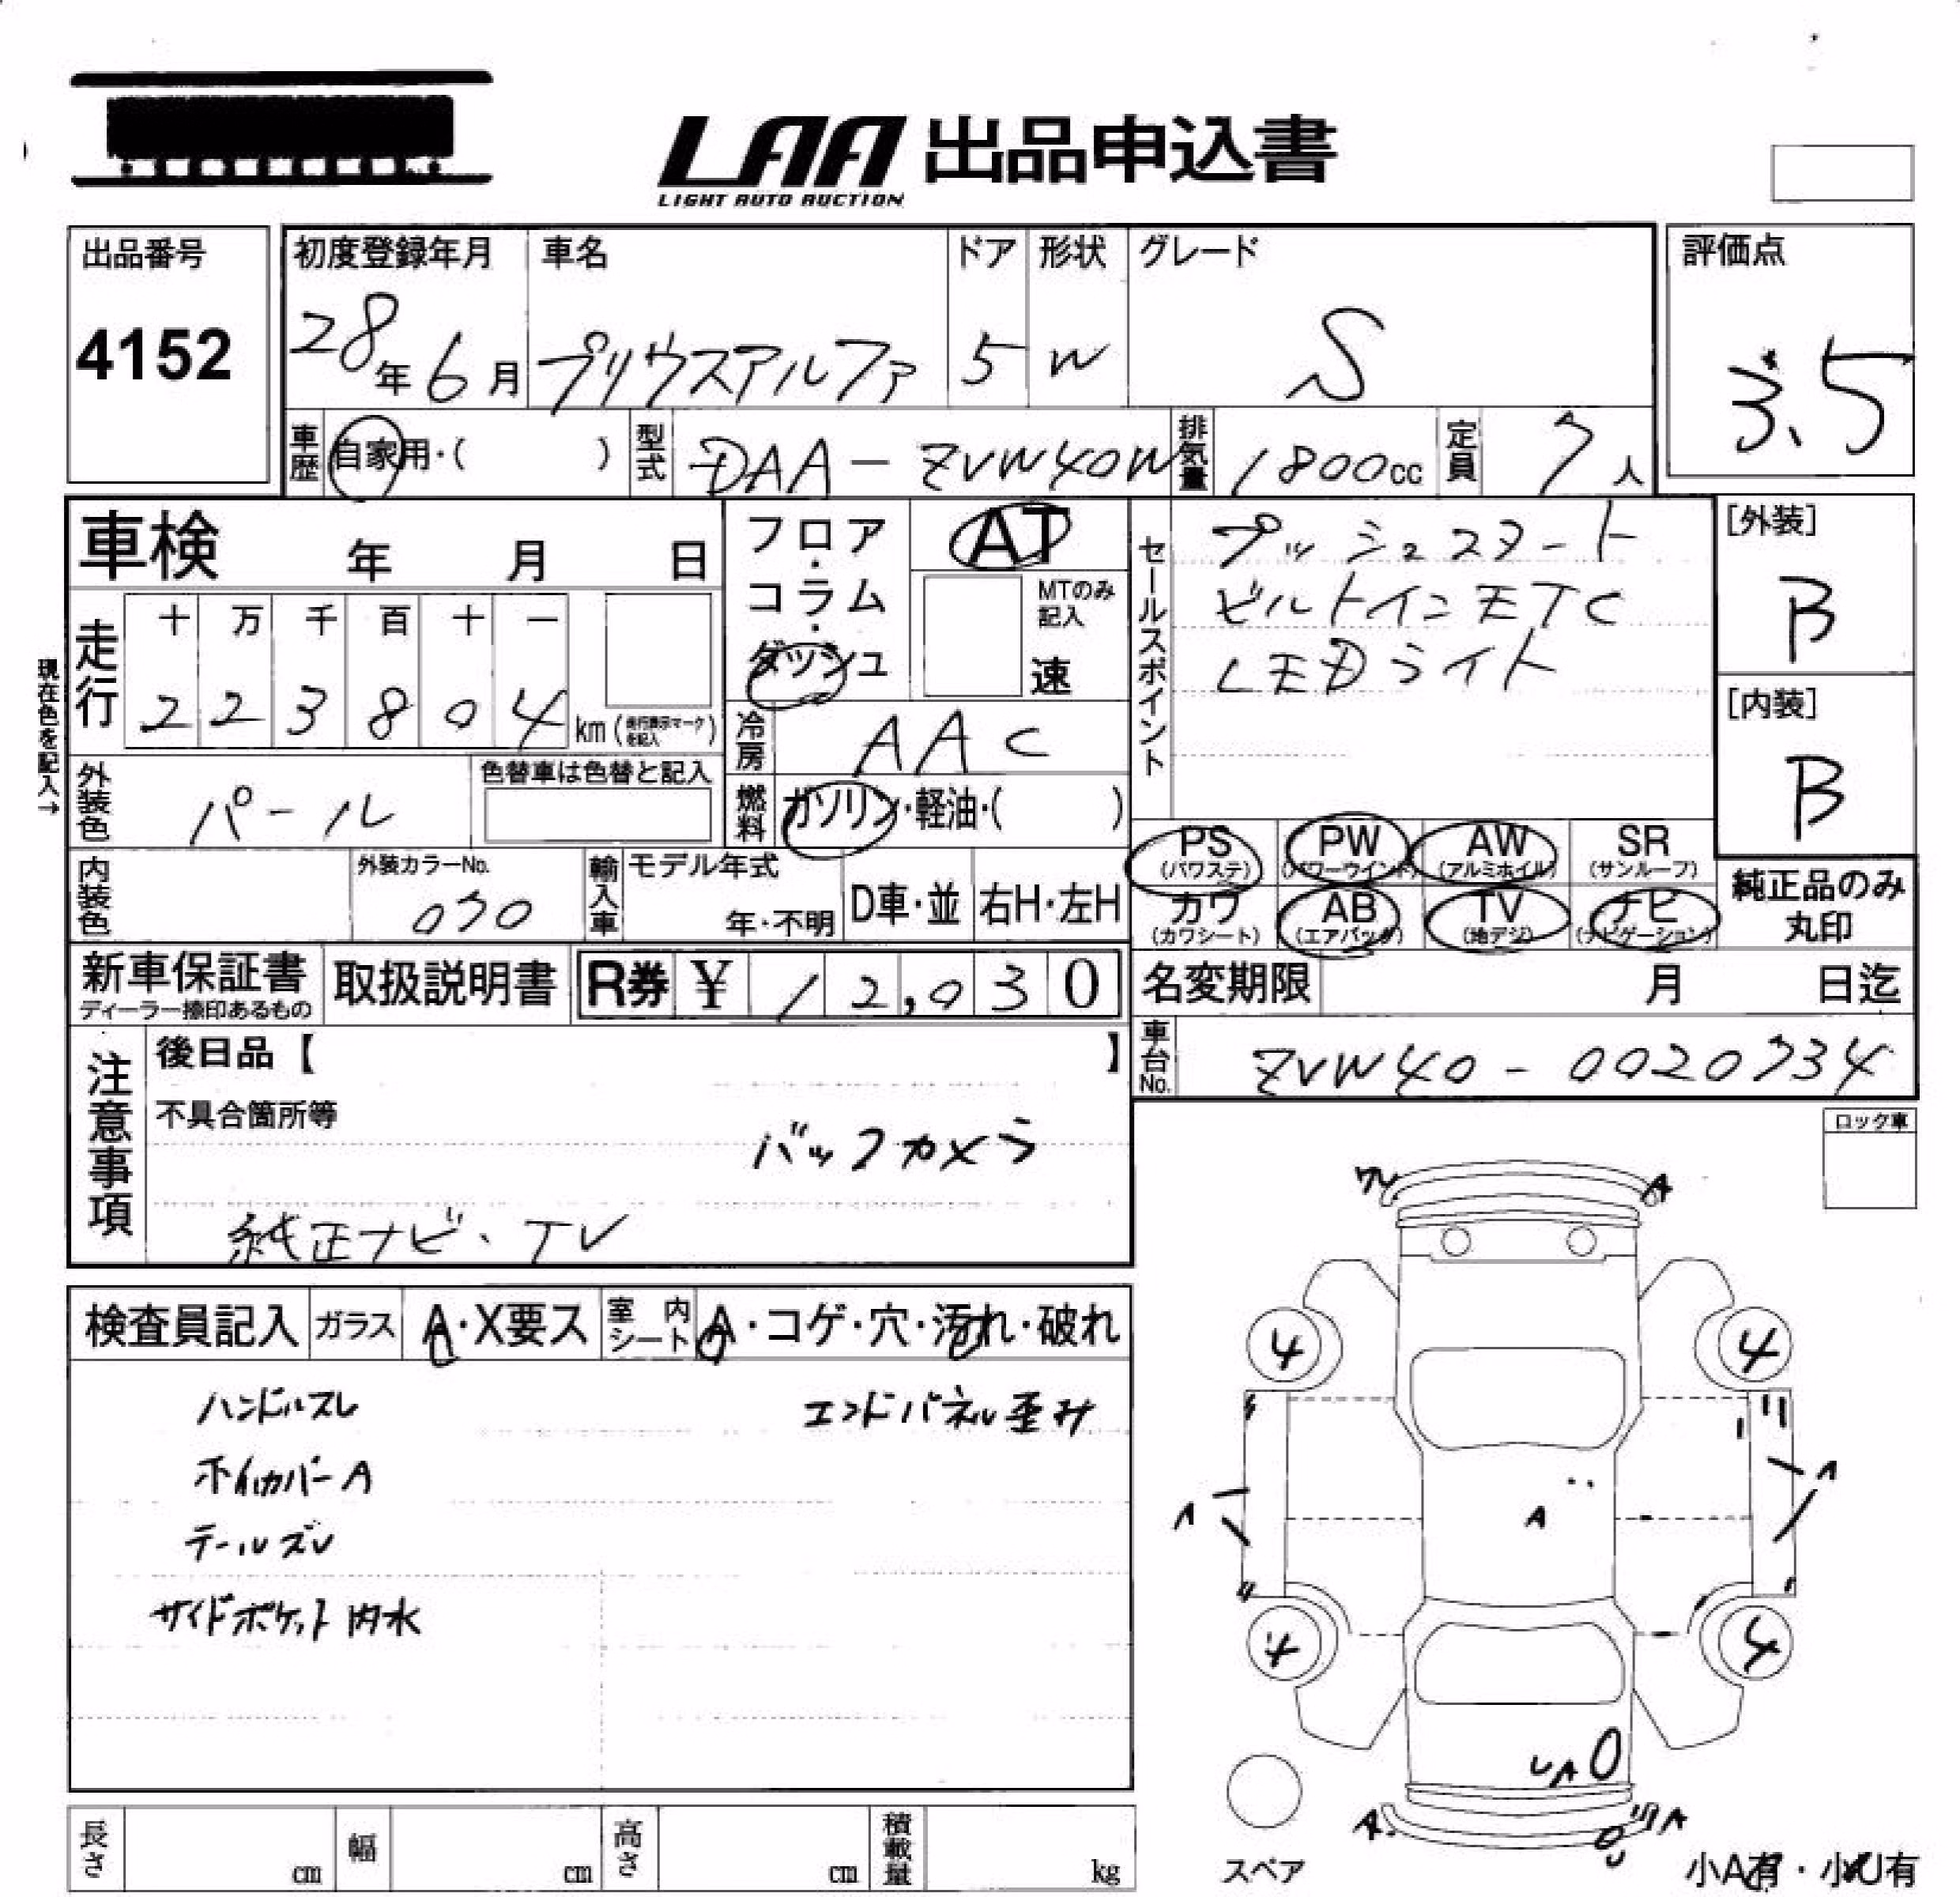 LAA 出品申込書
LIGHT AUTO AUCTION
出品番号
4152
初度登録年月
28年6月
車名
プリウスアルファ
ドア
5
形状
W
グレード
S
評価点
3.5
車歴
自家用・( )
型式
DAA-ZVW40W
排気量
1800cc
定員
7人
車検 年 月 日
走行
十 万 千 百 十 一
2 2 3 8 0 4 km (走行表示マークを記入)
現在色を記入→
外装色
パール
色替車は色替と記入
内装色
外装カラーNo.
070
フロア・コラム・ダッシュ
AT
MTのみ記入
速
冷房
AAC
燃料
ガソリン・軽油・( )
輸入車
モデル年式
年・不明
D車・並
右H・左H
セールスポイント
プッシュスタート
ビルトインETC
LEDライト
[外装]
B
[内装]
B
PS (パワステ)
PW (パワーウインド)
AW (アルミホイル)
SR (サンルーフ)
カワ (カワシート)
AB (エアバック)
TV (地デジ)
ナビ (ナビゲーション)
純正品のみ丸印
新車保証書
ディーラー捺印あるもの
取扱説明書
R券 ¥ 12,030
名変期限 月 日迄
車台No.
ZVW40-0020734
注意事項
後日品【 】
不具合箇所等
バックカメラ
純正ナビ、TV
ロック車
検査員記入
ガラス
A・X要ス
室内シート
A・コゲ・穴・汚れ・破れ
ハンドルスレ
エンドパネル歪み
ホイルカバーA
テールズレ
サイドポケット内水
ワレ
A
4
4
A
A
A
4
4
UA
A
A
スペア
小A有・小U有
長さ cm
幅 cm
高さ cm
積載量 kg